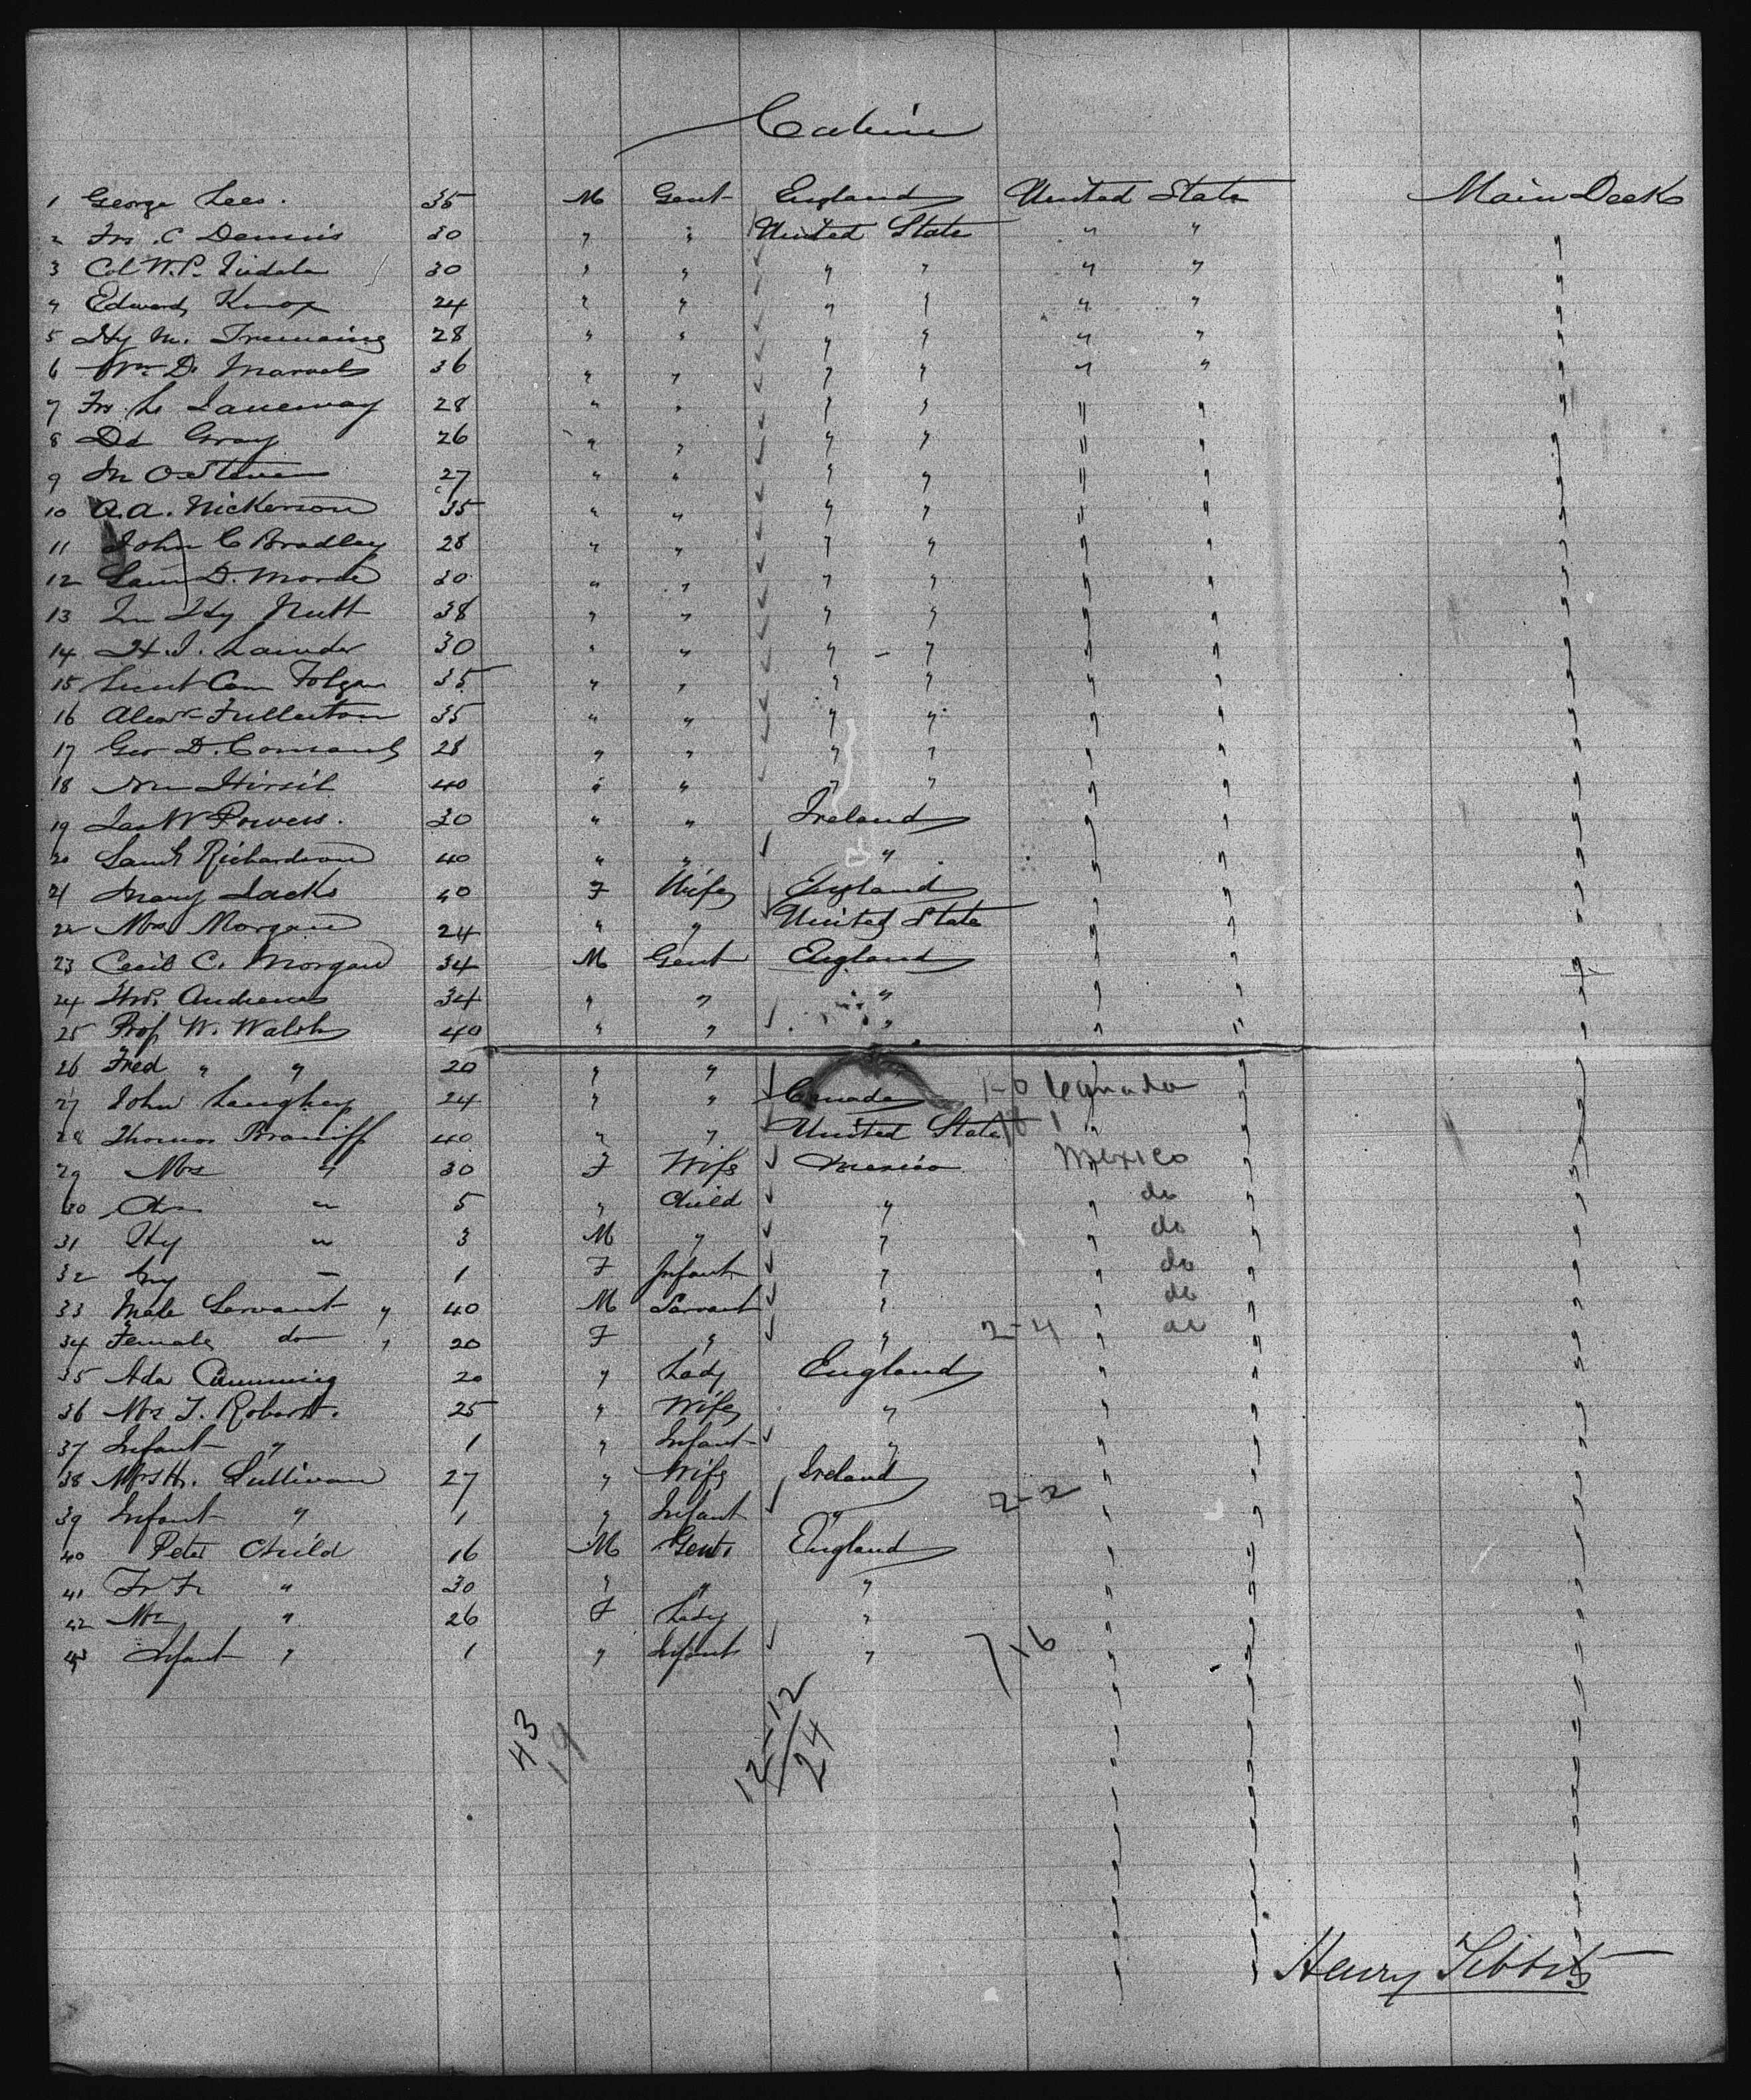 Cabin
1 George Lees. 35 M Gent England United State Main Deck
2 Fr. C Dennis 30 " " United State " " "
3 Col W.P. 30 " " " " " " "
4 Edward Knox 24 " " " " " " "
5 Hy M. Tremaine 28 " " " " " " "
6 Wm D. Marvel 36 " " " " " " "
7 Fr. L Janeway 28 " " " " " " "
8 Dd Gray 26 " " " " " " "
9 27 " " " " " " "
10 A.A. Nickerson 35 " " " " " " "
11 John C Bradley 28 " " " " " " "
12 Sam D. 30 " " " " " " "
13 Hy Nutt 38 " " " " " " "
14 H.J. 30 " " " " " " "
15 Lieut Com Folger 35 " " " " " " "
16 Alexr Fullerton 35 " " " " " " "
17 Geo D. 28 " " " " " " "
18 40 " " " " " " "
19 Jas W Powers. 30 " " Ireland " " "
20 Saml Richardson 40 " " " " " "
21 Mary Jacks 40 F Wife England " " "
22 Mrs Morgan 24 " " United State " " "
23 Cecil C. Morgan 34 M Gent England " " "
24 Andrews 34 " " " " " "
25 Prof W. Walsh 40 " " " " " "
26 Fred " " 20 " " " " " "
27 John Langhey 24 " " Canada 1-0 Canada " " "
28 Thomas Braniff 40 " " United State " " "
29 Mrs " 30 F Wife Mexico Mexico " " "
30 " 5 " Child " " do " "
31 Hy " 3 M " " " do " "
32 " 1 F Infant " " do " "
33 Male Servant " 40 M Servant " " do " "
34 Female do " 20 F " " 2-4 " do " "
35 Ada Cumming 20 " Lady England " " "
36 Mrs T. Roberts. 25 " Wife " " " "
37 Infant " 1 " Infant " " " "
38 Mrs H. Sullivan 27 " Wife Ireland " " "
39 Infant " 1 " Infant " 2-2 " " "
40 Peter Child 16 M Gent. England " " "
41 Fr Fr " 30 " " " " " "
42 Mrs " 26 F Lady " " " "
43 Infant " 1 " Infant " 7 16 " " "
43
19
12-12
24
Henry Tibbits